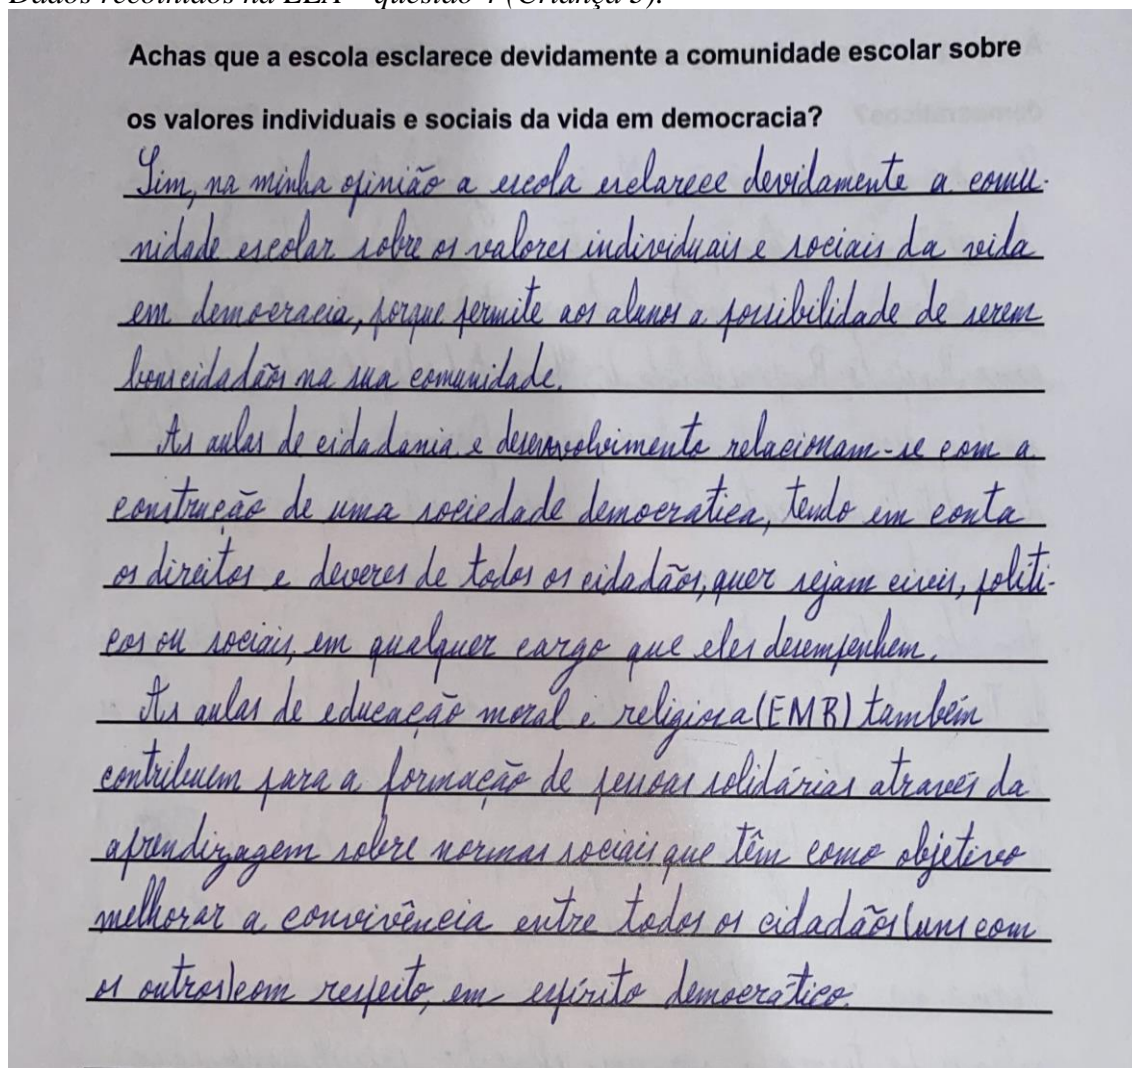 Dados recolhidos na EEA – questão 4 (Criança 3).
Achas que a escola esclarece devidamente a comunidade escolar sobre
os valores individuais e sociais da vida em democracia?
Sim, na minha opinião a escola esclarece devidamente a comu-
nidade escolar sobre os valores individuais e sociais da vida
em democracia, porque permite aos alunos a possibilidade de serem
bons cidadãos na sua comunidade.
As aulas de cidadania e desenvolvimento relacionam-se com a
construção de uma sociedade democratica, tendo em conta
os direitos e deveres de todos os cidadãos, quer sejam civis, politi-
cos ou sociais, em qualquer cargo que eles desempenhem.
As aulas de educação moral e religiosa (EMR) também
contribuem para a formação de pessoas solidárias através da
aprendizagem sobre normas sociais que têm como objetivo
melhorar a convivência entre todos os cidadãos (uns com
os outros) com respeito, em espírito democrático.